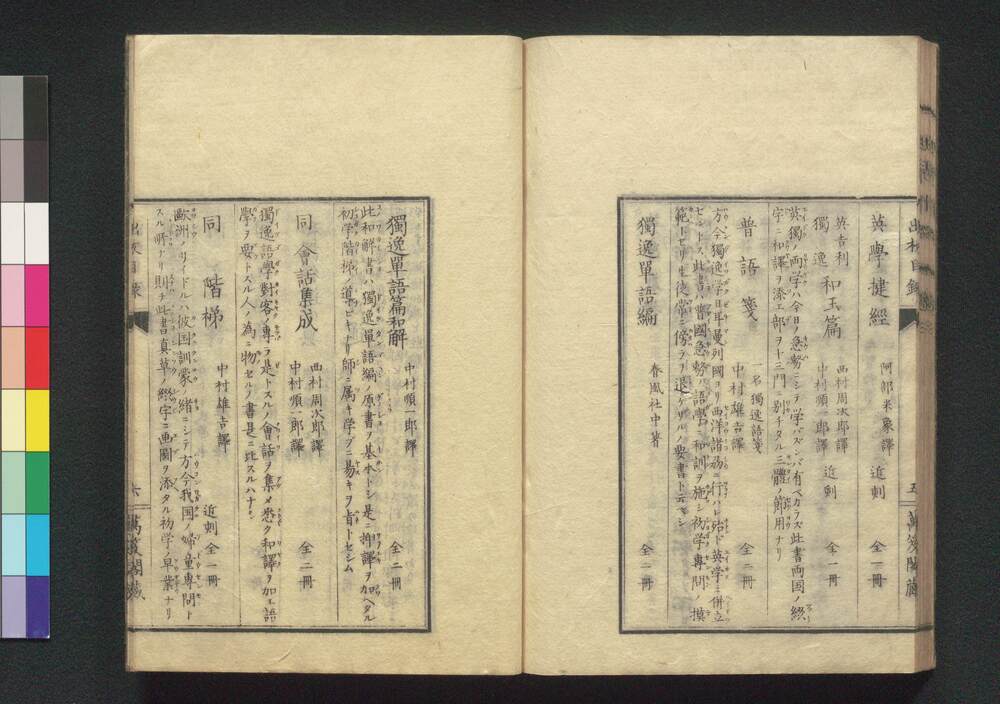 出板目録
五
萬笈閣藏
英學捷經
阿部米象譯
近刻
全二冊
英吉利
獨逸
和玉篇
西村周次郎譯
中村順一郎譯
近刻
全一冊
英獨ノ両字ハ今日ノ急務ニシテ学バズンバ有ベカラズ此書両国ノ綴
字ニ和譯ヲ添エ部ヲ十三門ニ別チタル三體ノ節用ナリ
普語箋
一名獨逸語箋
中村雄吉譯
全二冊
方今獨逸学日耳曼列國ヨリ西洋諸洲ニ行ハレ殆ド英学ニ併立
セントス此書ハ普國急務ノ語学ニ和訓ヲ施シ初学専問ノ模
範トセリ生徒常ニ傍ラヲ退ケザルノ要書ト云モシ
獨逸單語編
春風社中著
全一冊
獨逸單語篇和解
中村順一郎譯
全二冊
此和解書ハ獨逸單語編ノ原書ヲ基本トシ是ニ挿譯ヲ加ヘタル
初学階梯ノ導ビキナリ師ニ属キ学ブニ易キヲ旨トセシム
同會話集成
西村周次郎譯
中村順一郎譯
全二冊
獨逸語學對客ノ專ラ是トスル會話ヲ集メ悉ク和譯ヲ加エ語
學ヲ要トスル人ノ為ニ物セルノ書是ニ比スルハナシ
同階梯
中村雄吉譯
近刻
全一冊
歐洲ノリイドルハ彼国訓蒙ノ緒ニシテ方今我国ノ婦童專問ト
スル所ナリ則チ此書真草ノ綴字ニ画圖ヲ添タル初学ノ早業ナリ
出板目録
六
萬笈閣藏